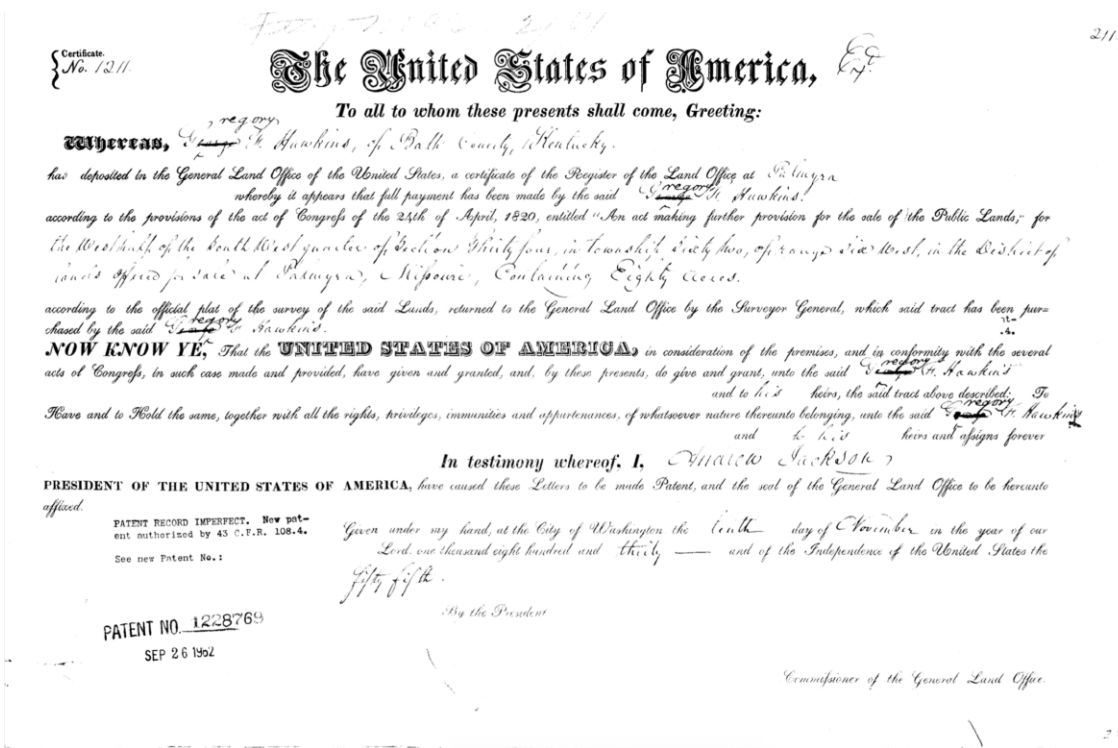 211
Certificate.
No. 1211.
The United States of America,
To all to whom these presents shall come, Greeting:
regory
Whereas, George F. Hawkins, of Bath County, Kentucky.
has deposited in the General Land Office of the United States, a certificate of the Register of the Land Office at Palmyra
regory
whereby it appears that full payment has been made by the said George F. Hawkins.
according to the provisions of the act of Congress of the 24th of April, 1820, entitled "An act making further provision for the sale of the Public Lands;" for
the West half of the South West quarter of Section Thirty four, in township Sixty two, of range Six West, in the District of
lands offered for sale at Palmyra, Missouri, Containing Eighty acres.
according to the official plat of the survey of the said Lands, returned to the General Land Office by the Surveyor General, which said tract has been pur=
regory
chased by the said George F. Hawkins.
NOW KNOW YE, That the UNITED STATES OF AMERICA, in consideration of the premises, and in conformity with the several
regory
acts of Congress, in such case made and provided, have given and granted, and, by these presents, do give and grant, unto the said George F. Hawkins
and to his heirs, the said tract above described: To
regory
Have and to Hold the same, together with all the rights, privileges, immunities and appurtenances, of whatsoever nature thereunto belonging, unto the said George F. Hawkins
and to his heirs and assigns forever
In testimony whereof, I, Andrew Jackson,
PRESIDENT OF THE UNITED STATES OF AMERICA, have caused these Letters to be made Patent, and the seal of the General Land Office to be hereunto
affixed.
PATENT RECORD IMPERFECT. New pat-
ent authorized by 43 C.F.R. 108.4.
See new Patent No.:
Given under my hand, at the City of Washington the tenth day of November in the year of our
Lord one thousand eight hundred and thirty and of the Independence of the United States the
fifty fifth.
By the President
PATENT NO. 1228769
SEP 26 1962
Commissioner of the General Land Office.